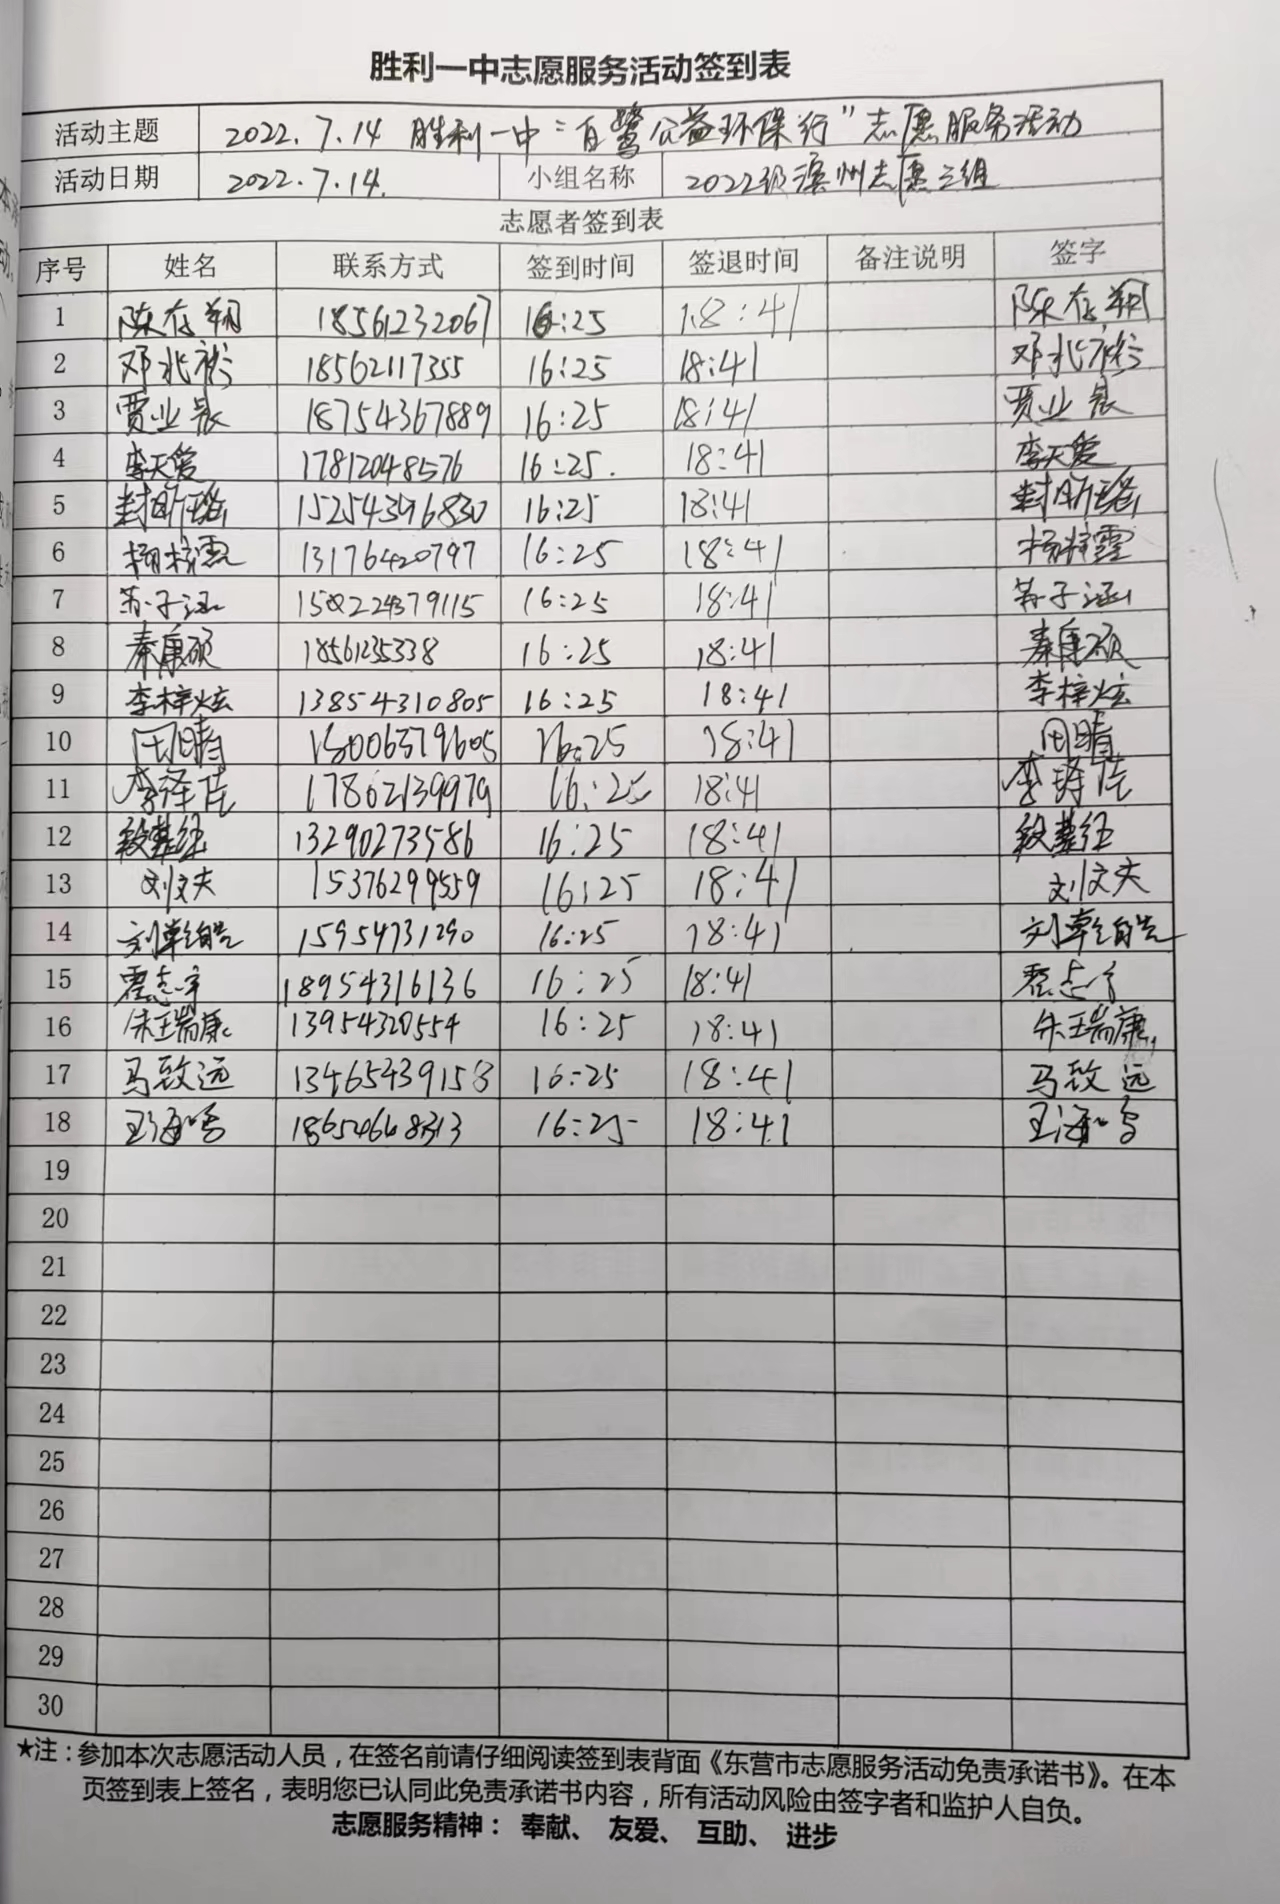 胜利一中志愿服务活动签到表
活动主题 2022.7.14 胜利一中"白鹭公益环保行"志愿服务活动
活动日期 2022.7.14. 小组名称 2022级滨州志愿三组
志愿者签到表
序号 姓名 联系方式 签到时间 签退时间 备注说明 签字
1 陈存翔 18561232067 16:25 18:41 陈存翔
2 邓兆裕 18562117355 16:25 18:41 邓兆裕
3 贾业晨 18754367889 16:25 18:41 贾业晨
4 李天爱 17812048576 16:25. 18:41 李天爱
5 封昕瑶 15254396830 16:25 18:41 封昕瑶
6 杨梓霏 13176420797 16:25 18:41 杨梓霏
7 苏子涵 16:25 18:41 苏子涵
8 秦康硕 18561235338 16:25 18:41 秦康硕
9 李梓炫 13854310805 16:25 18:41 李梓炫
10 田晴 18006379605 16:25 18:41 田晴
11 李泽佳 17862139979 16:25 18:41 李泽佳
12 13290273586 16:25 18:41
13 刘文夫 15376299559 16:25 18:41 刘文夫
14 刘乾皓 15954731290 16:25 18:41 刘乾皓
15 霍志宇 18954316136 16:25 18:41 霍志宇
16 朱王瑞康 13954320554 16:25 18:41 朱王瑞康
17 马致远 13465439158 16:25 18:41 马致远
18 王海鸣 16:25 18:41 王海鸣
19
20
21
22
23
24
25
26
27
28
29
30
★注：参加本次志愿活动人员，在签名前请仔细阅读签到表背面《东营市志愿服务活动免责承诺书》。在本
页签到表上签名，表明您已认同此免责承诺书内容，所有活动风险由签字者和监护人自负。
志愿服务精神： 奉献、 友爱、 互助、 进步